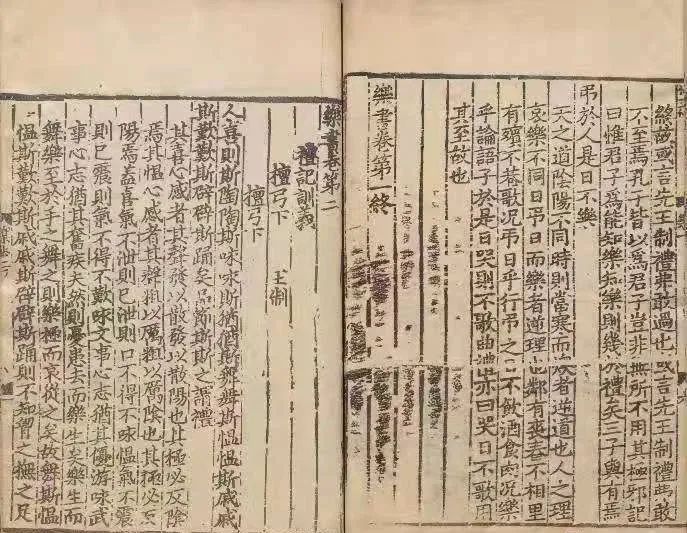 終故或言先王制禮弗敢過也或言先王制禮敢
不至焉孔子皆以爲君子豈非無所不用其極邪記
曰惟君子爲能知樂知樂則幾於禮矣三子與有焉
弔於人是日不樂
天之道陰陽不同時則當寒而者逆道也人之理
哀樂不同日弔日而樂者逆理也鄰有喪舂不相里
有殯不巷歌況弔日乎行弔之日不飲酒食肉況樂
乎論語子於是日哭則不歌曲禮亦曰哭日不歌用
其至故也
樂書卷第一終
樂書卷第二
禮記訓義
檀弓下 王制
檀弓下
人喜則斯陶陶斯咏咏斯猶猶斯舞舞斯慍慍斯戚戚
斯歎歎斯辟辟斯踊矣品節斯斯之謂禮
其喜心感者其聲發以散發以散陽也其極必反陰
焉其慍心感者其聲粗以厲粗以厲陰也其極必反
陽焉蓋喜氣不泄則已泄則口不得不咏慍氣不震
則已震則氣不得不歎咏文事心志猶其優游味武
事心志猶其奮疾夫然則憂弗去而樂生矣樂生而
舞樂至於手之舞之則樂極而哀從之矣故舞斯慍
慍斯歎歎斯戚戚斯辟辟斯踊則不知之撫之足